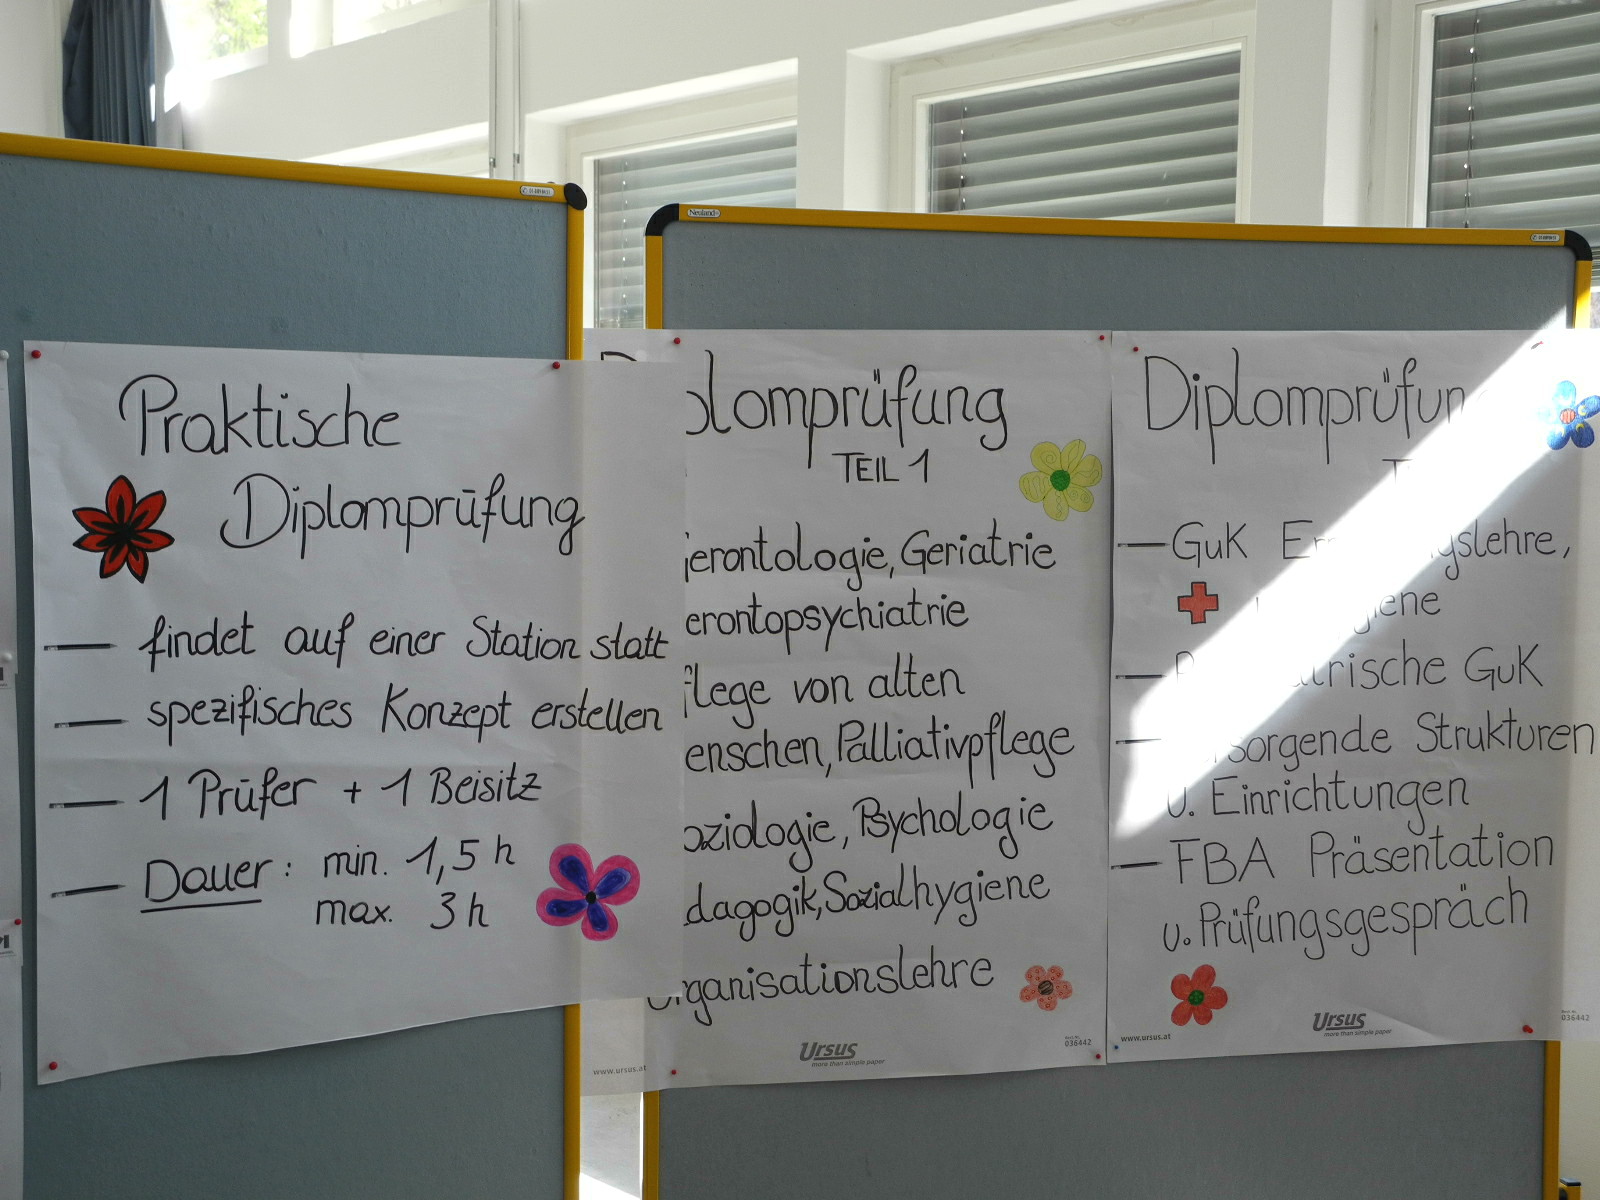 Praktische
Diplomprüfung
findet auf einer Station statt
spezifisches Konzept erstellen
1 Prüfer + 1 Beisitz
Dauer: min. 1,5 h
max. 3 h
plomprüfung
TEIL 1
erontologie, Geriatrie
erontopsychiatrie
flege von alten
enschen, Palliativpflege
oziologie, Psychologie
dagogik, Sozialhygiene
rganisationslehre
Ursus
more than simple paper
www.ursus.at
036442
Diplomprüfun
GuK
gslehre,
iene
rische GuK
sorgende Strukturen
u. Einrichtungen
FBA Präsentation
u. Prüfungsgespräch
Ursus
more than simple paper
www.ursus.at
036442
Neuland